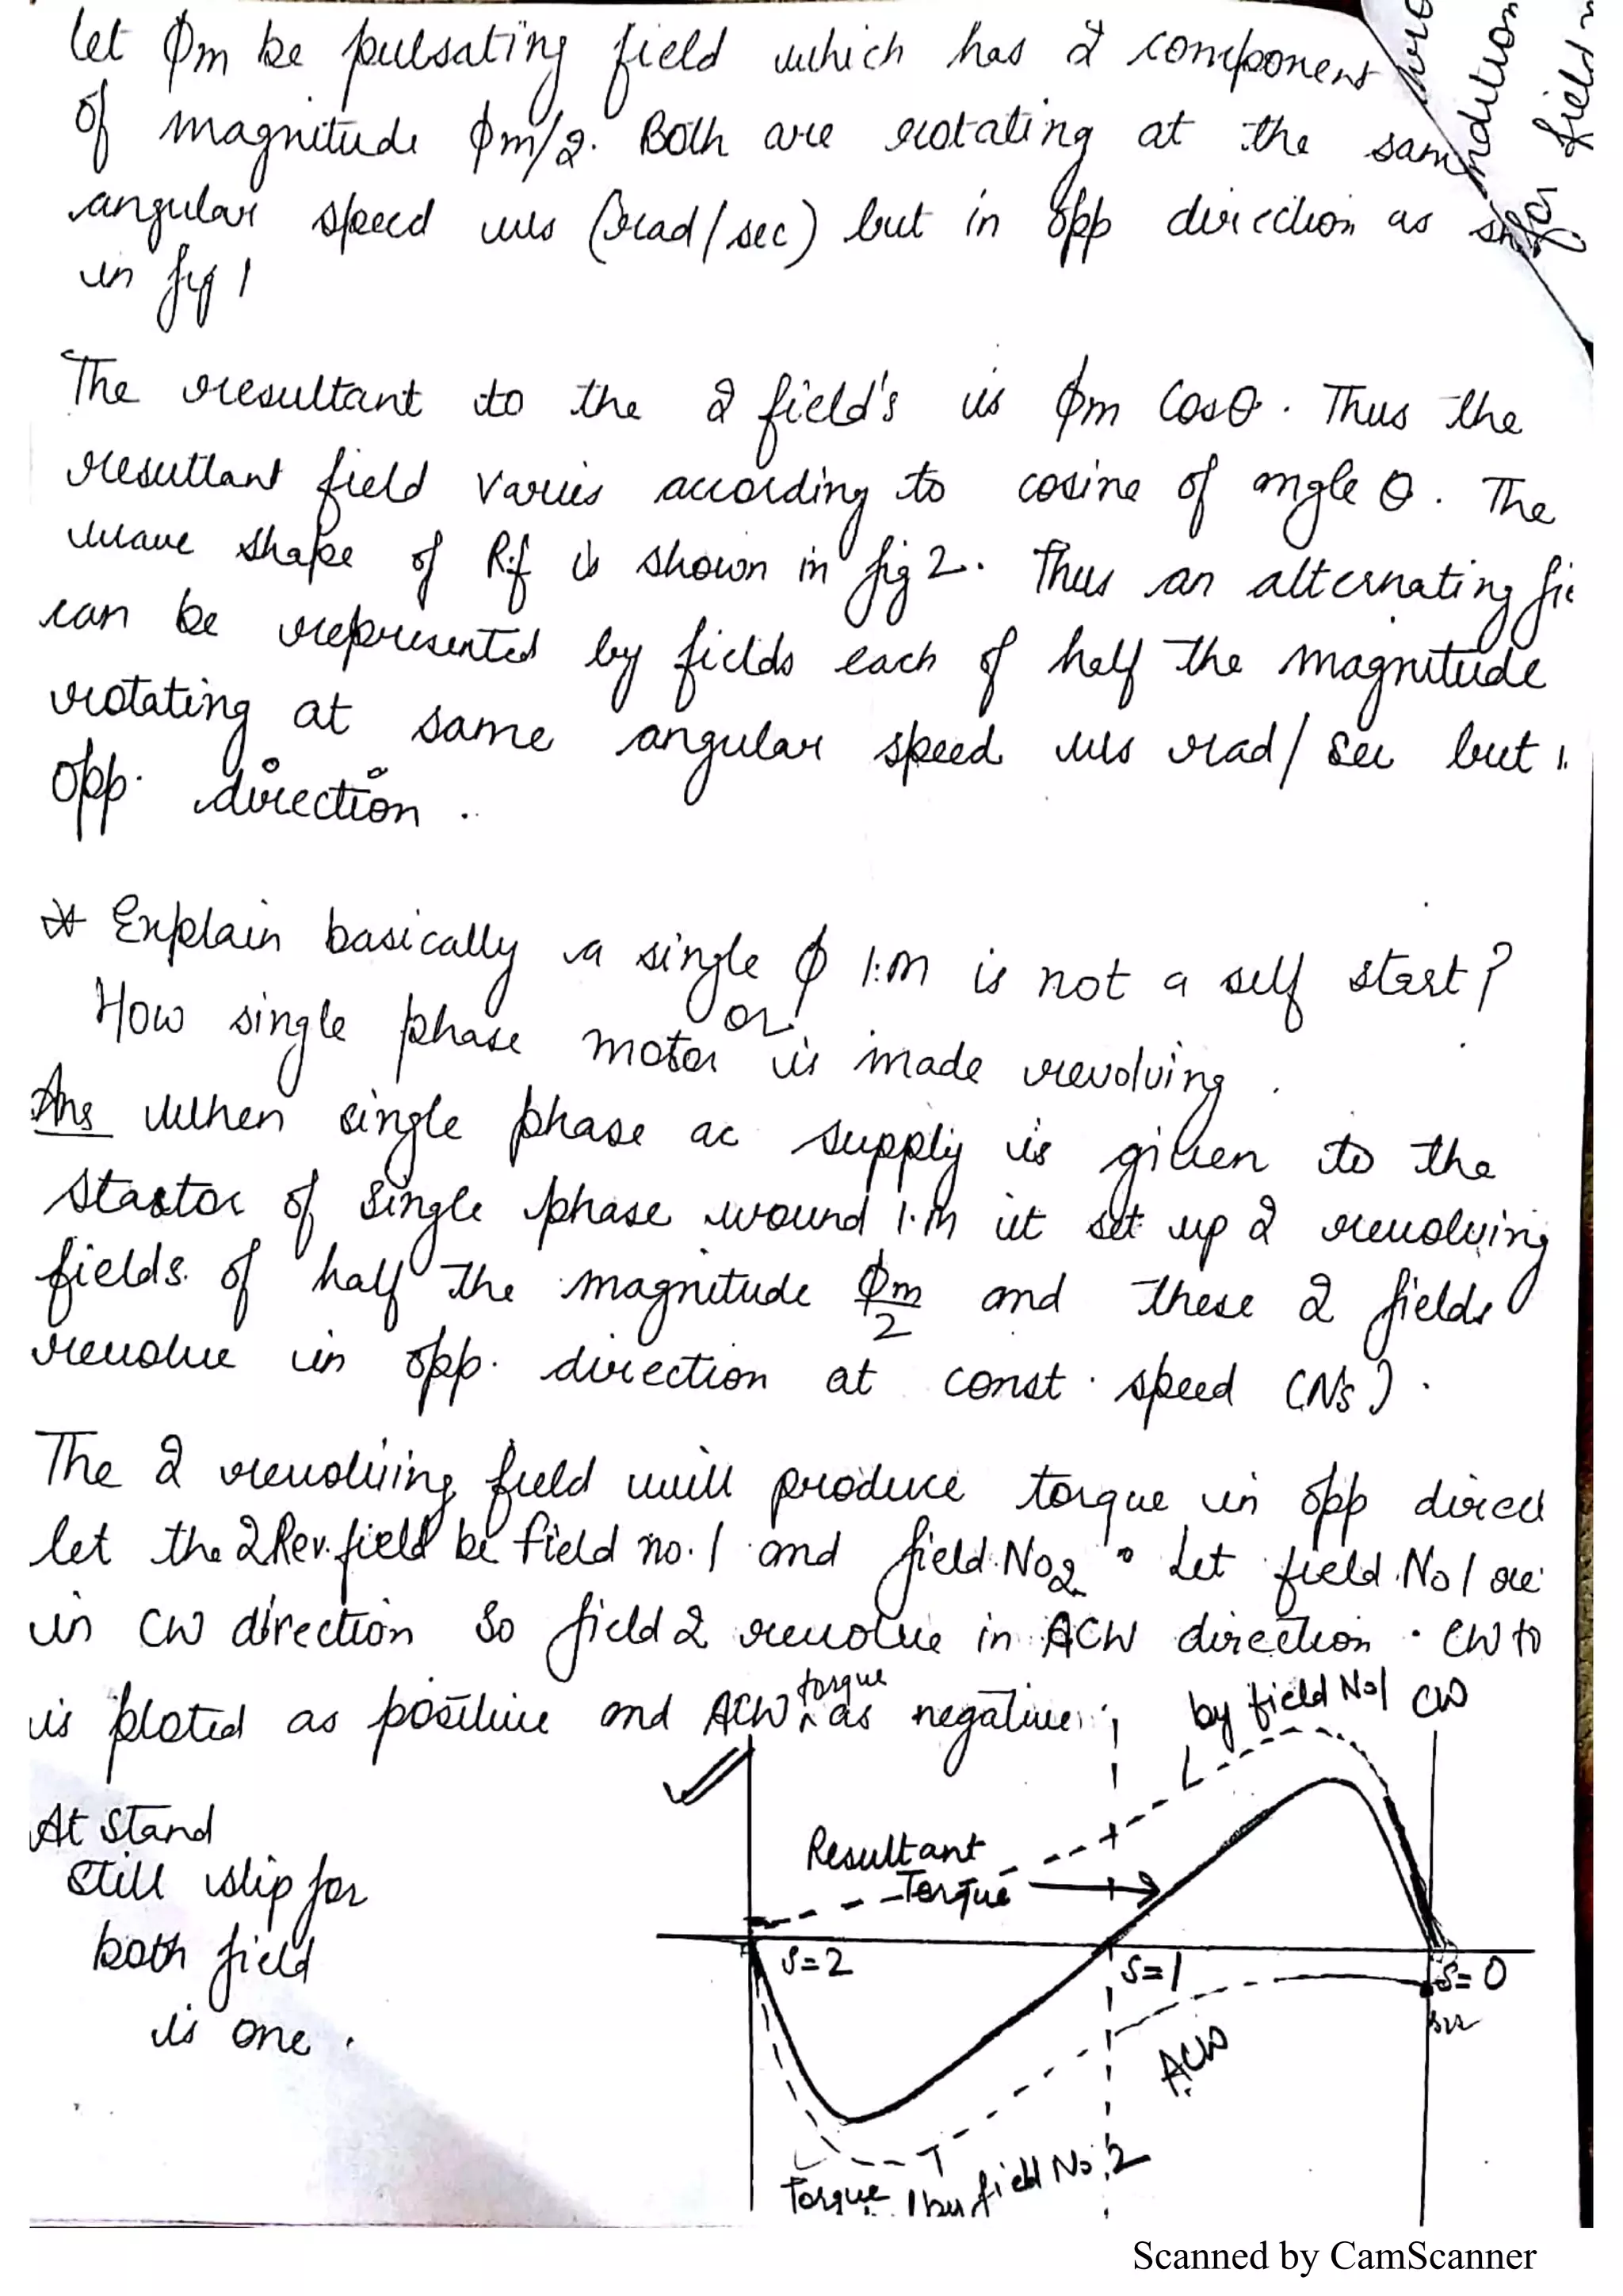 let ϕm be pulsating field which has 2 component
of magnitude ϕm/2. Both are rotating at the sam
angular speed ws (rad/sec) but in opp direction as sh
in fig 1
The resultant to the 2 field's is ϕm Cosθ. Thus the
resultant field varies according to cosine of angle θ. The
wave shape of R.f is shown in fig 2. Thus an alternating fie
can be represented by fields each of half the magnitude
rotating at same angular speed ws rad/sec but i
opp. direction.
* Explain basically a single ϕ I.M is not a self start?
or
How single phase motor is made revolving.
Ans When single phase ac supply is given to the
stastor of single phase wound I.M it set up 2 revolving
fields of half the magnitude ϕm/2 and these 2 fields
revolve in opp. direction at const. speed (Ns).
The 2 revolving field will produce torque in opp direct
let the 2 Rev. field be field no. 1 and field No 2. Let field No 1 re
in CW direction So field 2 revolve in ACW direction. CW to
is ploted as positive and ACW torque as negative.
by field No 1 CW
At stand
still slip for
both field
is one.
Resultant
Torque
S=2
S=1
S=0
ACW
Torque by field No. 2
ndition
for field
Scanned by CamScanner